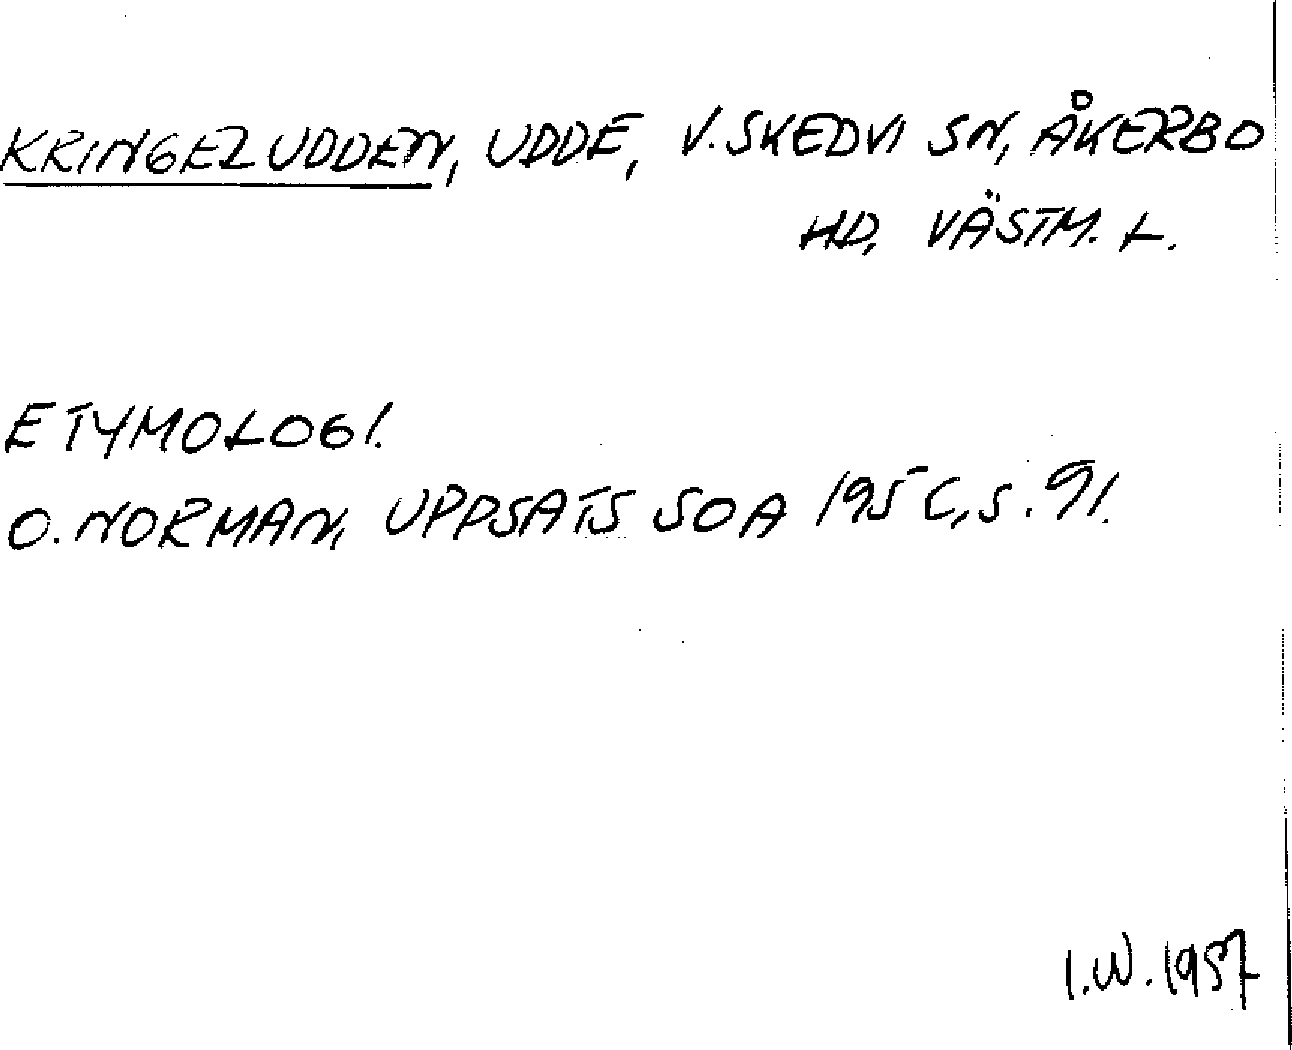 KRINGELUDDEN, UDDE, V. SKEDVI SN, ÅKERBO
HD, VÄSTM. L.
ETYMOLOGI.
O. NORMAN, UPPSATS SOA 1956, S. 91.
I.W. 1957